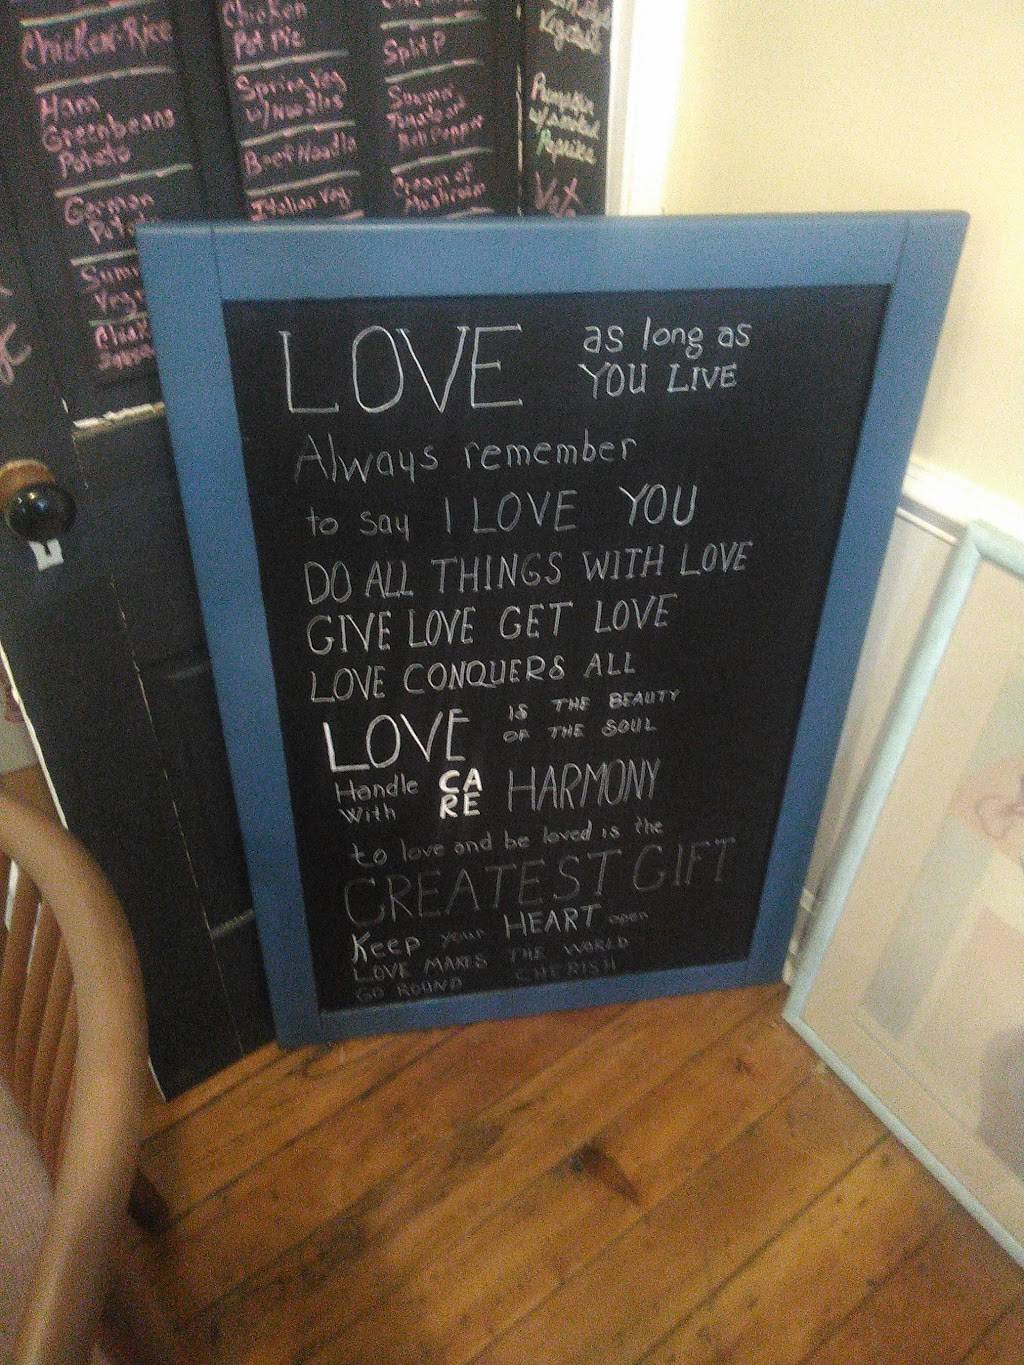 Chicken-Rice
Ham
Greenbeans
Potato
German
Chicken
Pot Pie
Spring Veg
w/Noodles
Beef Noodle
Italian Veg
Split P
Summer
Tomato or
Bell Pepper
Cream of
Mushroom
Vegetable
Pumpkin
Paprika
LOVE as long as
YOU LIVE
Always remember
to say I LOVE YOU
DO ALL THINGS WITH LOVE
GIVE LOVE GET LOVE
LOVE CONQUERS ALL
LOVE IS THE BEAUTY
OF THE SOUL
Handle With CARE HARMONY
to love and be loved is the
GREATEST GIFT
Keep your HEART open
LOVE MAKES THE WORLD
GO ROUND CHERISH